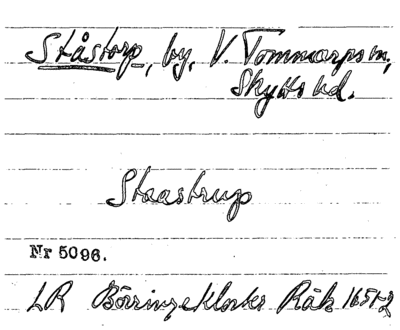 Ståstorp, by, V. Tommarps sn,
Skytts hd.
Staastrup
Nr 5096.
LR Börringeklosters Räk 1651-2